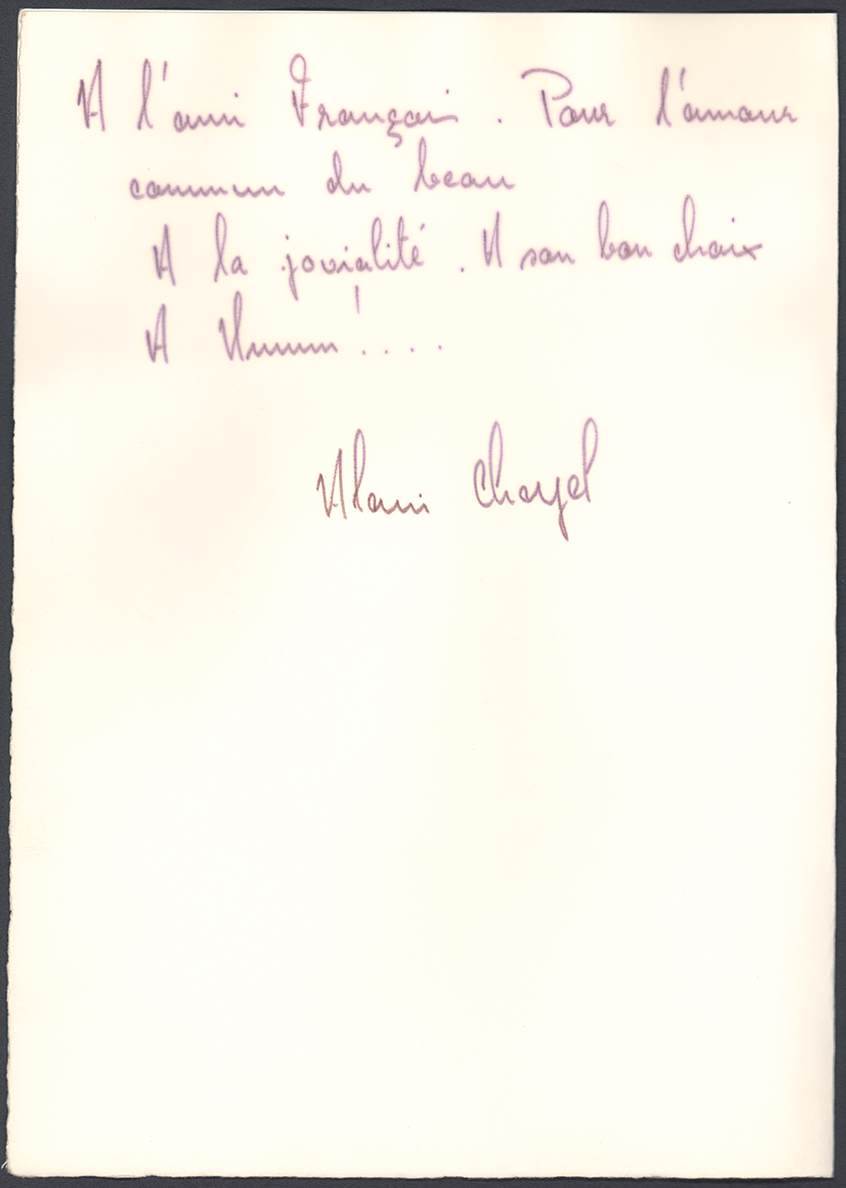 A l'ami Français. Pour l'amour
commun du beau
A la jovialité. A son bon choix
A Hmmm!....
Alain Chayel